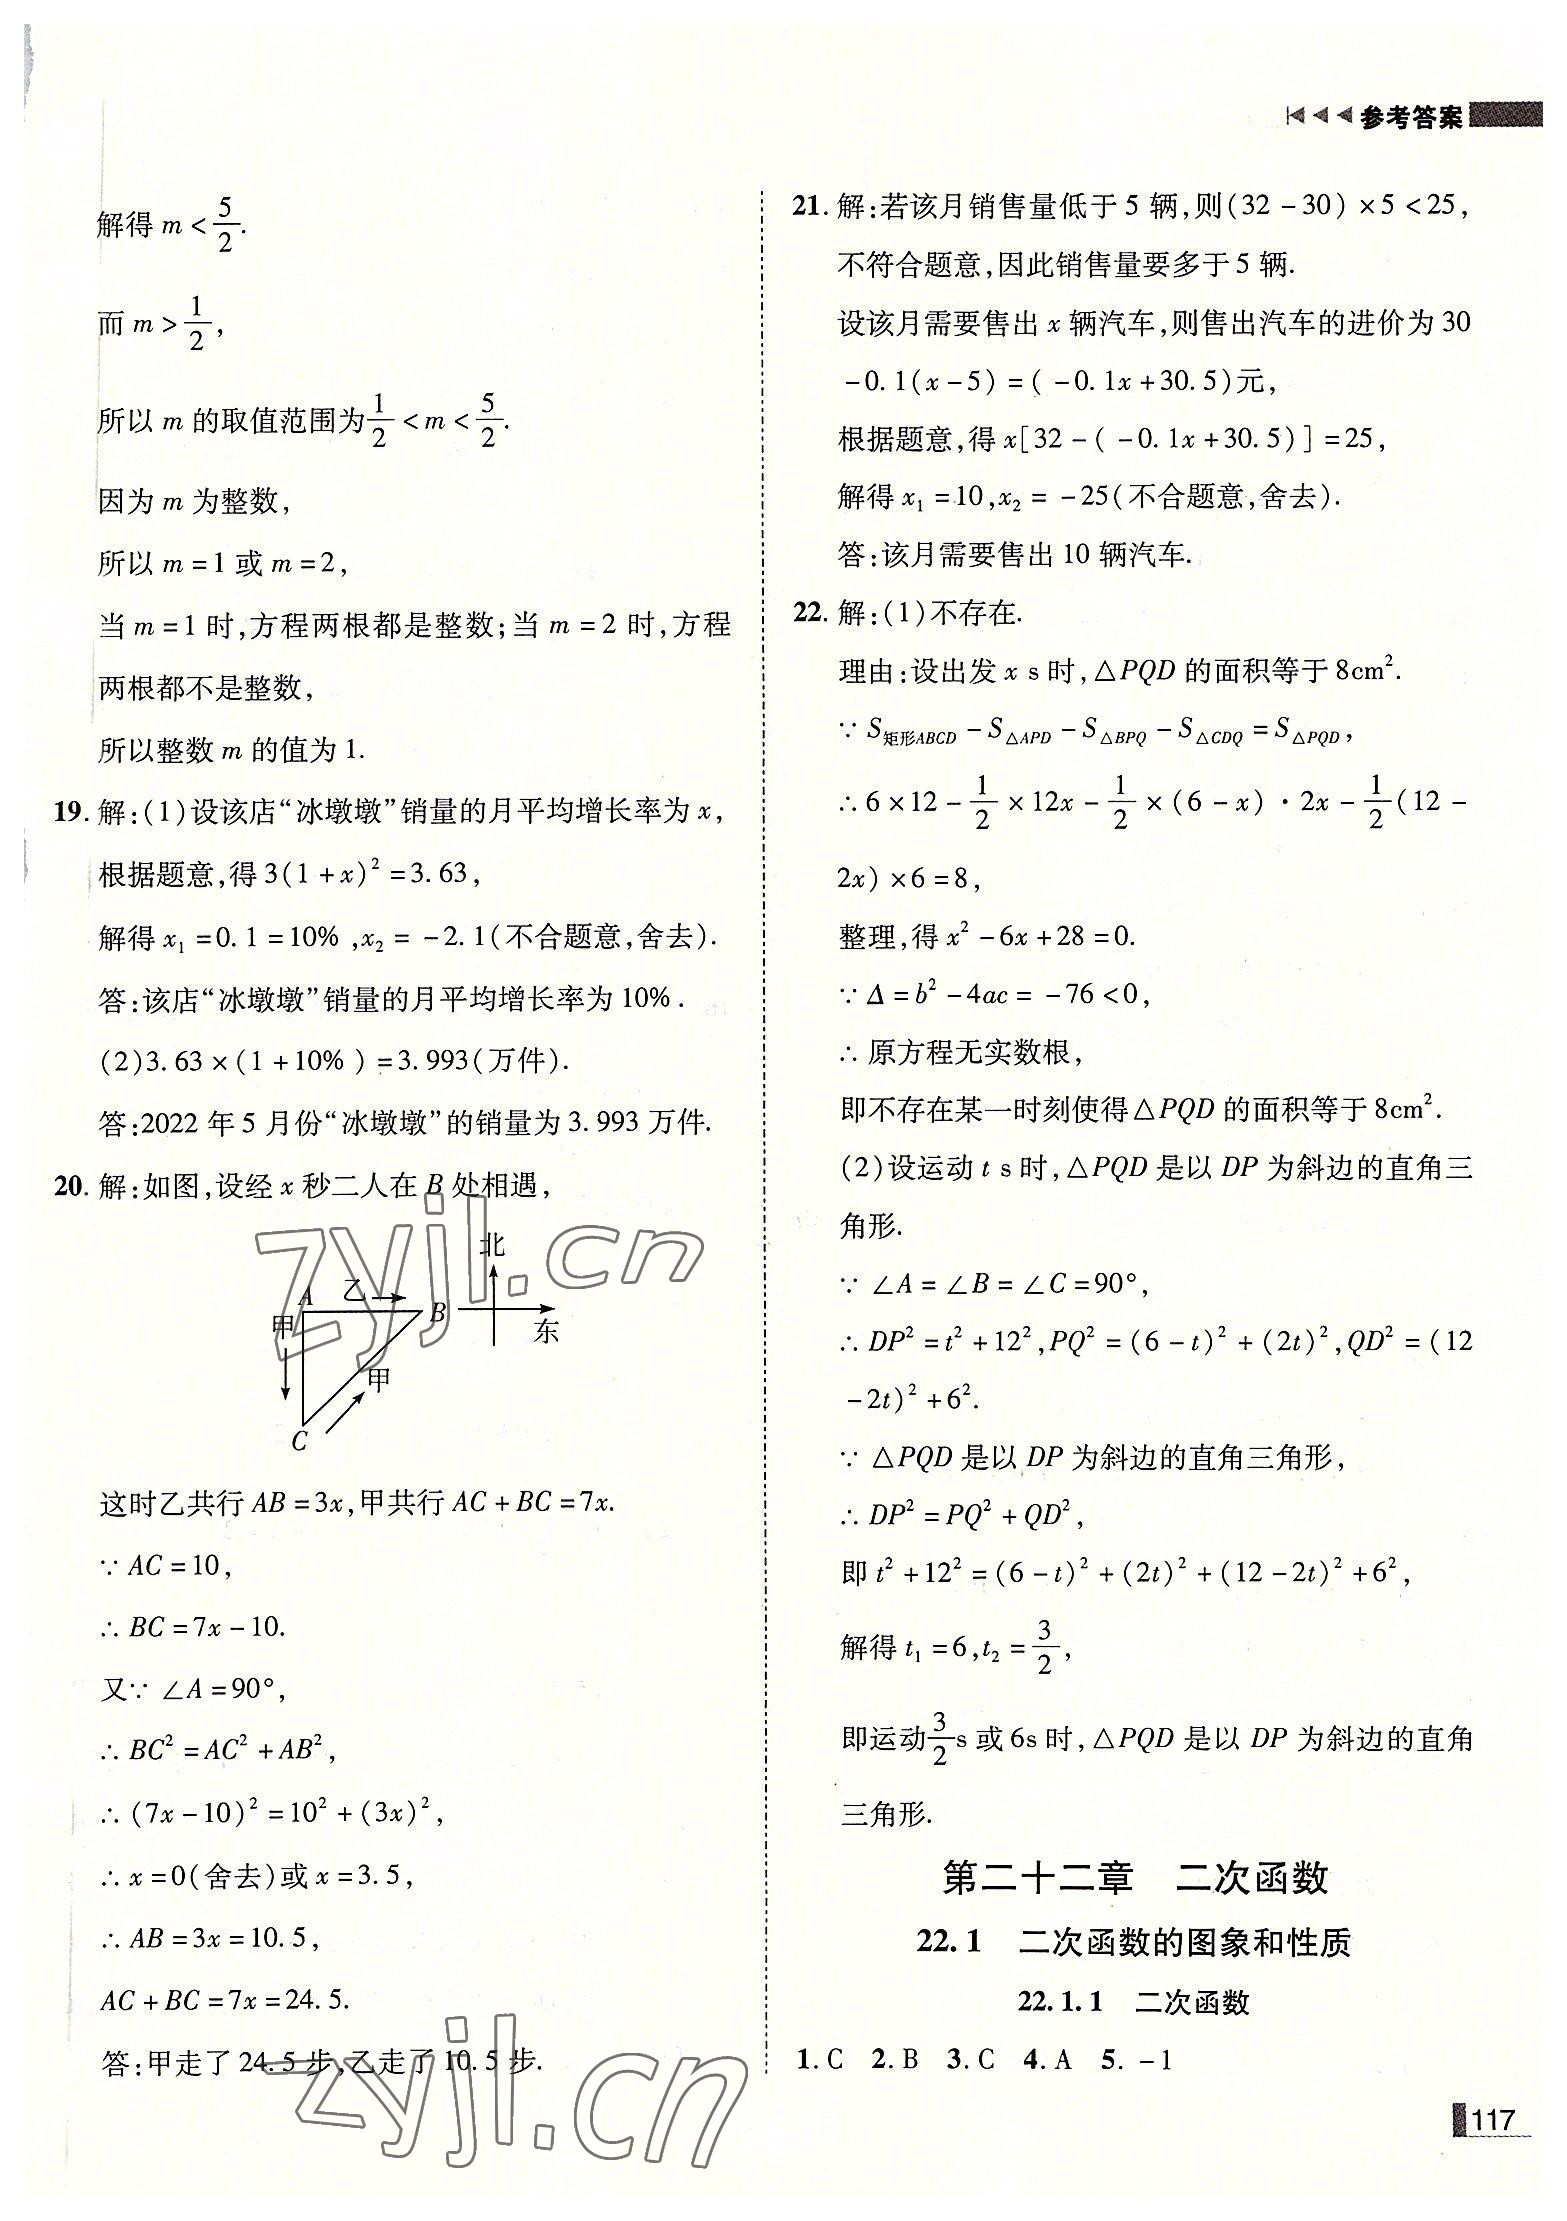 参考答案
解得 m < 5/2.
而 m > 1/2,
所以 m 的取值范围为 1/2 < m < 5/2.
因为 m 为整数,
所以 m = 1 或 m = 2,
当 m = 1 时,方程两根都是整数;当 m = 2 时,方程
两根都不是整数,
所以整数 m 的值为 1.
19. 解:(1)设该店“冰墩墩”销量的月平均增长率为 x,
根据题意,得 3(1 + x)² = 3.63,
解得 x₁ = 0.1 = 10%,x₂ = -2.1(不合题意,舍去).
答:该店“冰墩墩”销量的月平均增长率为 10%.
(2)3.63 × (1 + 10%) = 3.993(万件).
答:2022 年 5 月份“冰墩墩”的销量为 3.993 万件.
20. 解:如图,设经 x 秒二人在 B 处相遇,
北
A 乙 B
甲 东
甲
C
这时乙共行 AB = 3x,甲共行 AC + BC = 7x.
∵ AC = 10,
∴ BC = 7x - 10.
又∵ ∠A = 90°,
∴ BC² = AC² + AB²,
∴ (7x - 10)² = 10² + (3x)²,
∴ x = 0(舍去)或 x = 3.5,
∴ AB = 3x = 10.5,
AC + BC = 7x = 24.5.
答:甲走了 24.5 步,乙走了 10.5 步.
21. 解:若该月销售量低于 5 辆,则(32 - 30) × 5 < 25,
不符合题意,因此销售量要多于 5 辆.
设该月需要售出 x 辆汽车,则售出汽车的进价为 30
- 0.1(x - 5) = ( - 0.1x + 30.5)元,
根据题意,得 x[32 - ( - 0.1x + 30.5)] = 25,
解得 x₁ = 10,x₂ = - 25(不合题意,舍去).
答:该月需要售出 10 辆汽车.
22. 解:(1)不存在.
理由:设出发 x s 时,△PQD 的面积等于 8cm².
∵ S矩形ABCD - S△APD - S△BPQ - S△CDQ = S△PQD,
∴ 6 × 12 - 1/2 × 12x - 1/2 × (6 - x) · 2x - 1/2(12 -
2x) × 6 = 8,
整理,得 x² - 6x + 28 = 0.
∵ Δ = b² - 4ac = - 76 < 0,
∴ 原方程无实数根,
即不存在某一时刻使得△PQD 的面积等于 8cm².
(2)设运动 t s 时,△PQD 是以 DP 为斜边的直角三
角形.
∵ ∠A = ∠B = ∠C = 90°,
∴ DP² = t² + 12²,PQ² = (6 - t)² + (2t)²,QD² = (12
- 2t)² + 6².
∵ △PQD 是以 DP 为斜边的直角三角形,
∴ DP² = PQ² + QD²,
即 t² + 12² = (6 - t)² + (2t)² + (12 - 2t)² + 6²,
解得 t₁ = 6,t₂ = 3/2,
即运动 3/2 s 或 6s 时,△PQD 是以 DP 为斜边的直角
三角形.
第二十二章 二次函数
22.1 二次函数的图象和性质
22.1.1 二次函数
1. C 2. B 3. C 4. A 5. - 1
117
zyjl.cn
zyjl.cn